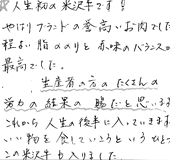 人生初の米沢牛です!!
やはりブランドの誉高いお肉でした
程よい脂ののりと赤味のバランスが
最高でした。
生産者の方のたくさんの
労力の結果の賜だと思います
これから人生の後半に入っていきます
いい物を食していこうというひとつ
この米沢牛も入りました